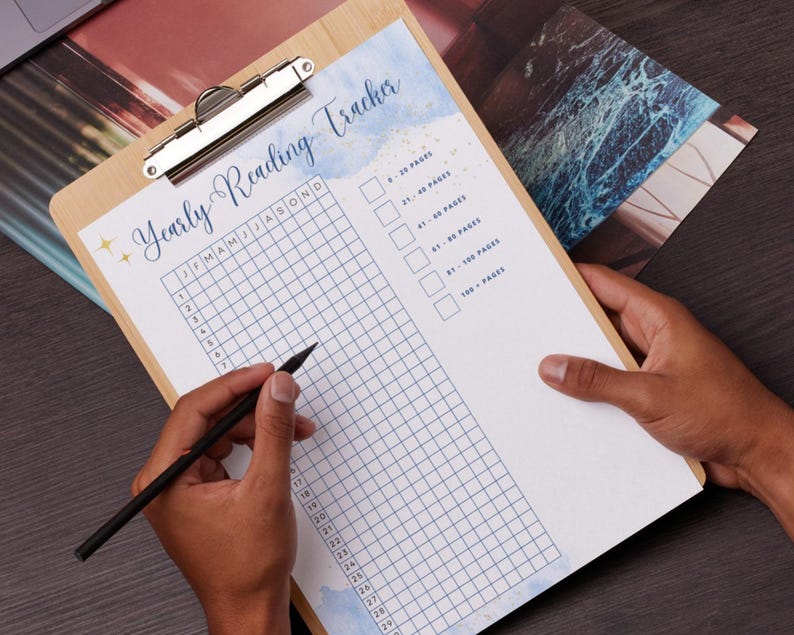 Yearly Reading Tracker
J F M A M J J A S O N D
1
2
3
4
5
6
7
17
18
19
20
21
22
23
24
25
26
27
28
29
0 - 20 PAGES
21 - 40 PAGES
41 - 60 PAGES
61 - 80 PAGES
81 - 100 PAGES
100 + PAGES